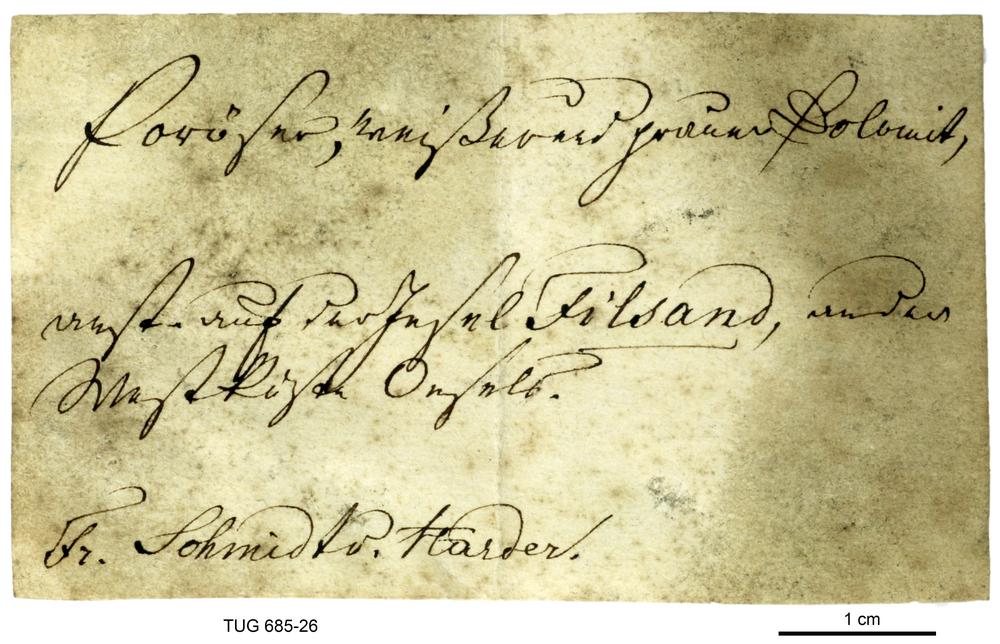 Poröser, weißer und grauer Dolomit,
anst. auf der Insel Filsand, an der
Westküste Oesels.
Fr. Schmidt v. Harder.
TUG 685-26
1 cm